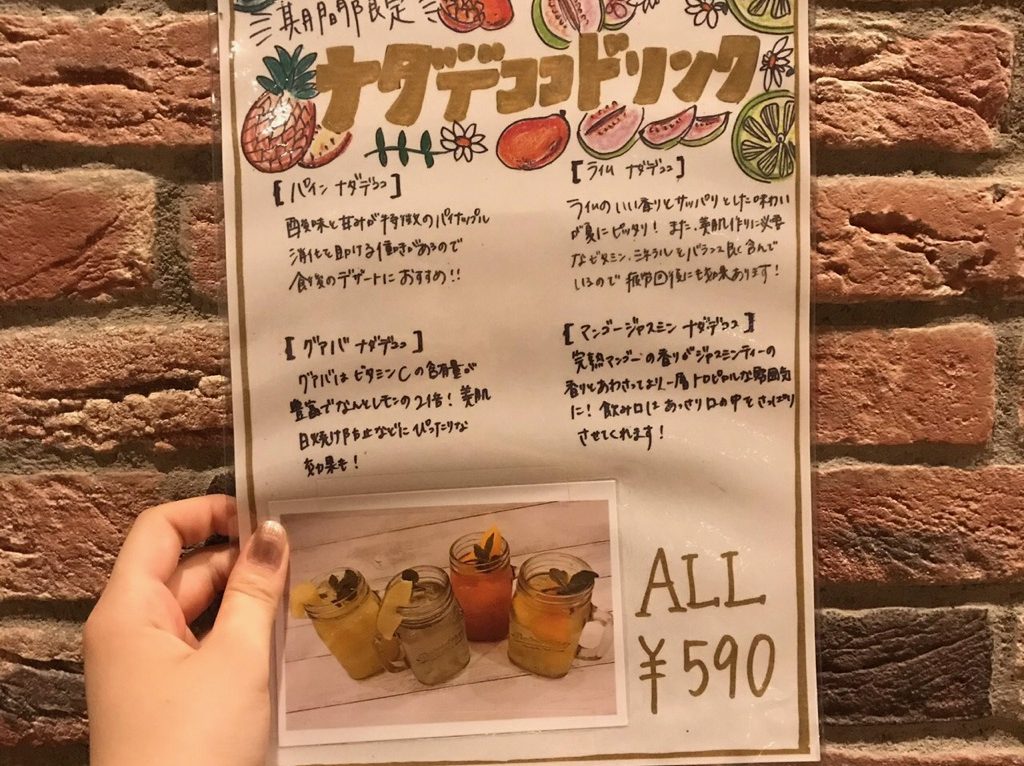 期間限定
ナダデココドリンク
【パイン ナダデココ】
酸味と甘みが特徴のパイナップル
消化を助ける働きがあるので
食後のデザートにおすすめ!!
【ライム ナダデココ】
ライムのいい香りとサッパリとした味わい
が夏にピッタリ! また、美肌作りに必要
なビタミン、ミネラルをバランス良く含んで
いるので 疲労回復にも効果あります!
【グァバ ナダデココ】
グァバは ビタミンCの含有量が
豊富でなんとレモンの2倍! 美肌
日焼け防止などに ぴったりな
効果も!
【マンゴージャスミン ナダデココ】
完熟マンゴーの香りがジャスミンティーの
香りとあわさってより一層 トロピカルな雰囲気
に! 飲み口は あっさり口の中を さっぱり
させてくれます!
ALL
¥590